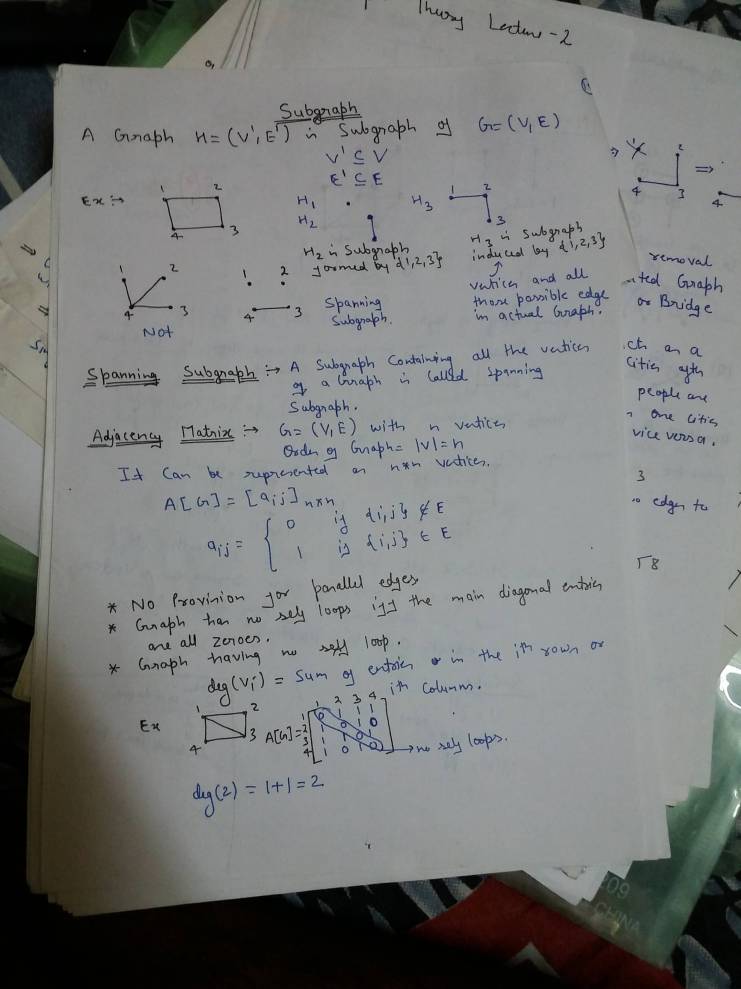 Theory Lecture-2
Subgraph
A Graph H=(V',E') is Subgraph of G=(V,E)
V' ⊆ V
E' ⊆ E
Ex:→
1 2
4 3
H₁
H₂
H₃ 1 2
3
H₂ is Subgraph
formed by {1,2,3}
H₃ is Subgraph
induced by {1,2,3}
vertices and all
those possible edge
in actual Graph.
1 2
4 3
Not
1 2
4 3
Spanning
Subgraph.
Spanning Subgraph:→ A Subgraph Containing all the vertices
of a Graph is Called Spanning
Subgraph.
Adjacency Matrix:→ G=(V,E) with n vertices
Order of Graph=|V|=n
It Can be represented as n*n vertices.
A[G]=[aij]n*n
aij= { 0 if {i,j} ∉ E
1 if {i,j} ∈ E
* No Provision for parallel edges
* Graph has no self loops iff the main diagonal entries
are all zeroes.
* Graph having no self loop.
deg(Vi) = Sum of entries in the ith rows or
ith Columns.
Ex
1 2
4 3
A[G]=
1 2 3 4
1 0 1 1 1
2 1 0 1 0
3 1 1 0 1
4 1 0 1 0
→no self loops.
deg(2) = 1+1=2
1 2
4 3
⇒
4
removal
Graph
or Bridge
on a
Cities
people are
one cities
vice versa.
3
edges to
09
CHINA